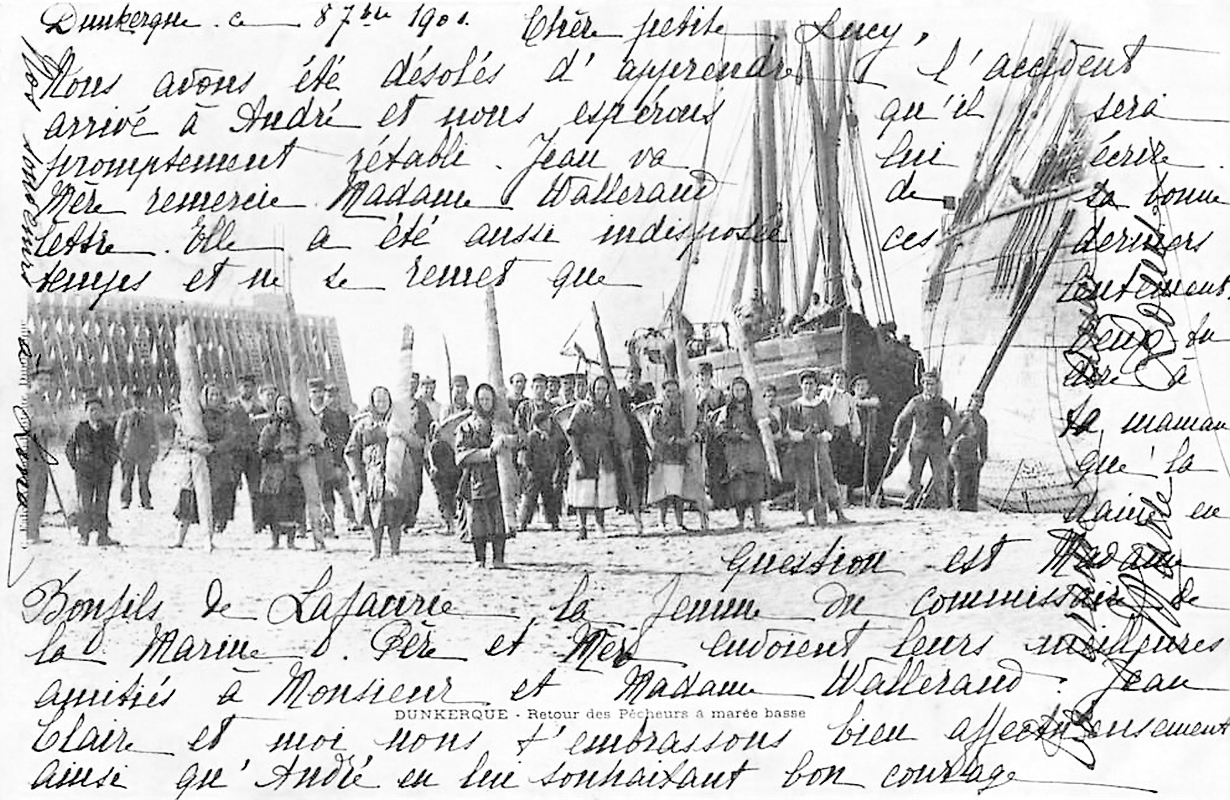 Dunkerque ce 8 7bre 1901. Chère petite Lucy,
Nous avons été désolés d'apprendre l'accident
arrivé à André et nous espérons qu'il sera
promptement rétabli. Jean va lui écrire.
Mère remercie Madame Wallerand de sa bonne
lettre. Elle a été aussi indisposée ces derniers
temps et ne se remet que lentement
Veux tu
dire à
ta maman
que la
en
question est Madame
Bonfils de Lafaurie la femme du commissaire de
la Marine. Père et Mère envoient leurs meilleures
amitiés à Monsieur et Madame Wallerand. Jean
DUNKERQUE - Retour des Pêcheurs à marée basse
Claire et moi nous t'embrassons bien affectueusement
ainsi qu'André en lui souhaitant bon courage